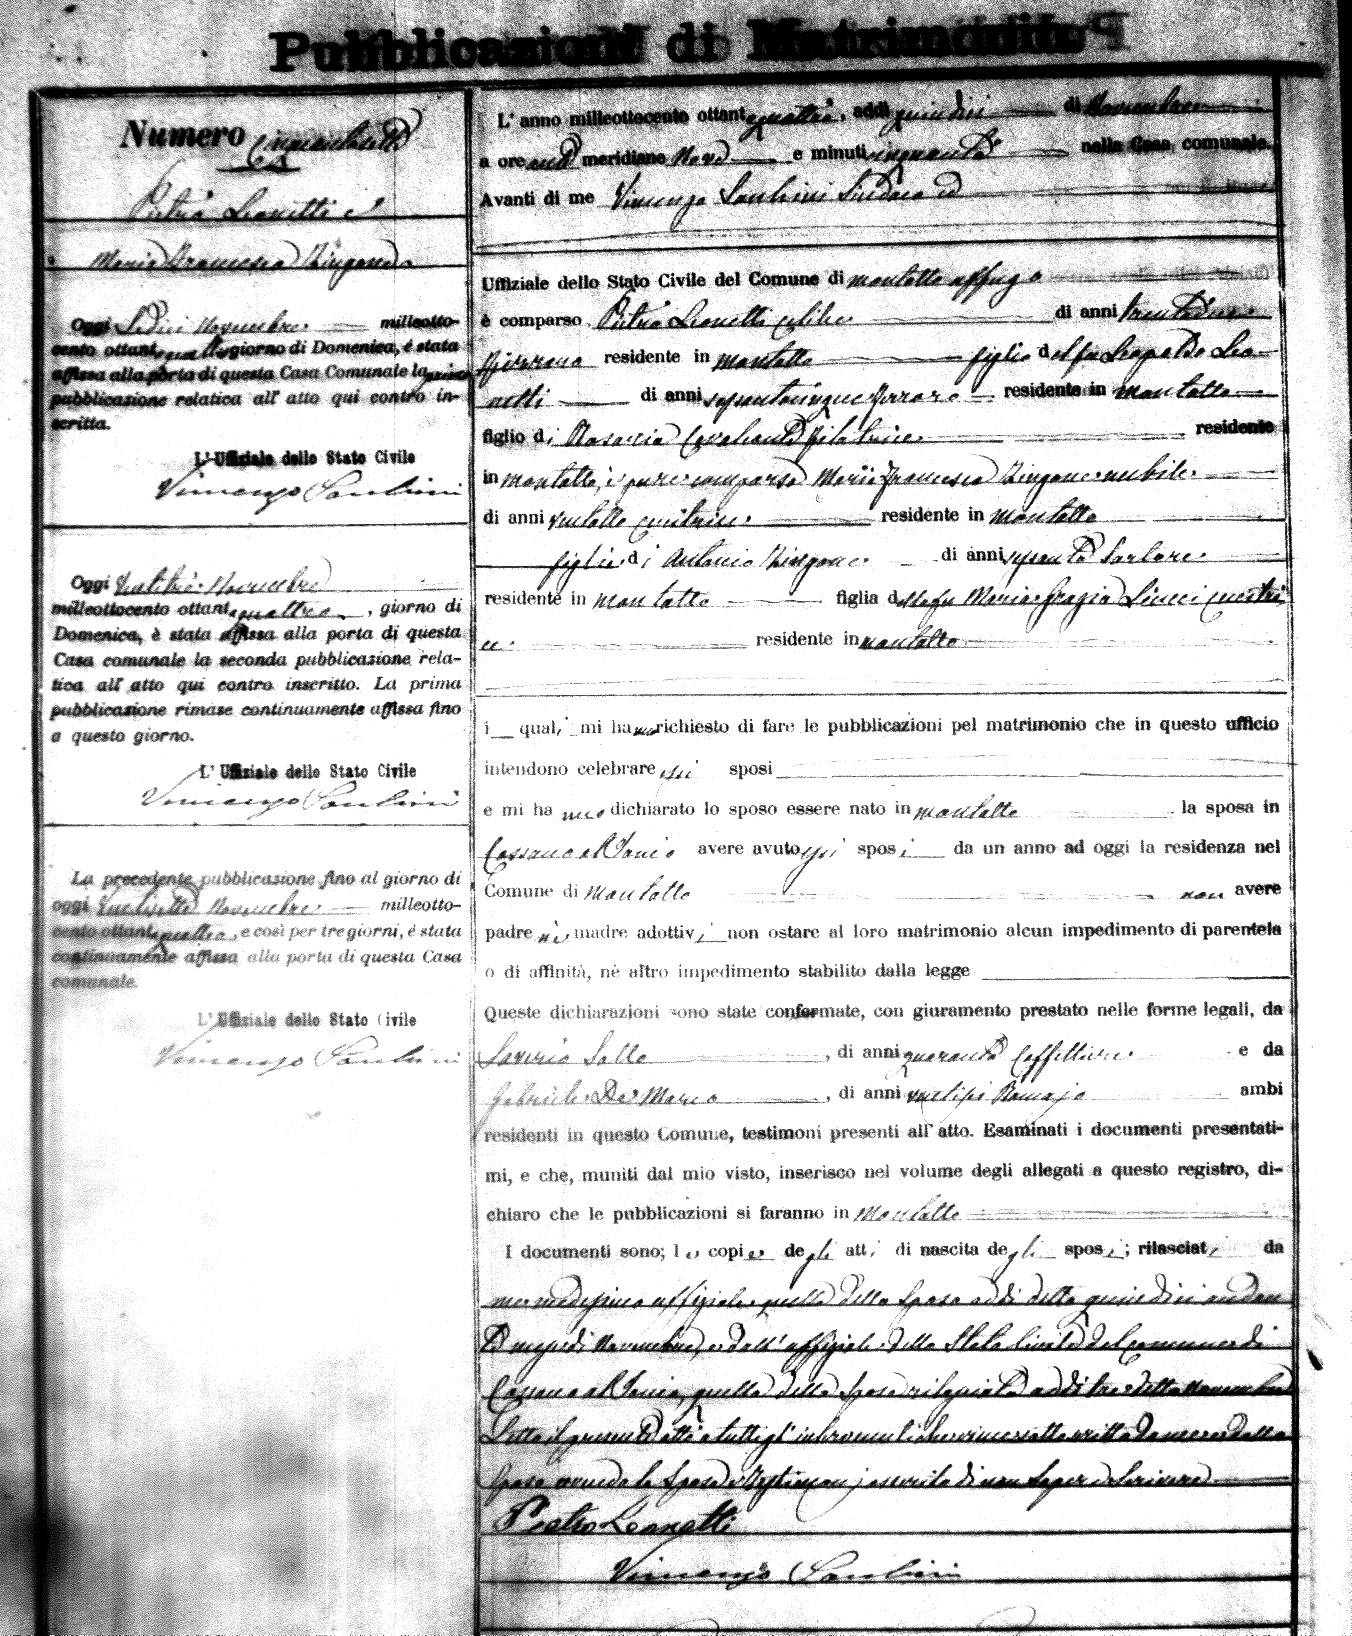 Pubblicazioni di Matrimonio
Numero Cinquantasette
Pietro Leonetti e
Maria Francesca Zingone
Oggi Sedici Novembre milleotto-
cento ottantaquattro giorno di Domenica, è stata
affissa alla porta di questa Casa Comunale la prima
pubblicazione relativa all' atto qui contro in-
scritta.
L' Uffiziale dello Stato Civile
Vincenzo
Oggi Ventitre Novembre
milleottocento ottantaquattro, giorno di
Domenica, è stata affissa alla porta di questa
Casa comunale la seconda pubblicazione rela-
tica all' atto qui contro inscritto. La prima
pubblicazione rimase continuamente affissa fino
a questo giorno.
L' Uffiziale dello Stato Civile
Vincenzo
La precedente pubblicazione fino al giorno di
oggi Novembre milleotto-
cento ottantaquattro, e così per tre giorni, è stata
continuamente affissa alla porta di questa Casa
comunale.
L' Uffiziale dello Stato Civile
Vincenzo
L' anno milleottocento ottantaquattro, addì quindici di Novembre
a ore anti meridiane Nove e minuti cinquanta nella Casa comunale.
Avanti di me Vincenzo Sindaco ed
Uffiziale dello Stato Civile del Comune di montalto uffugo
è comparso Pietro Leonetti celibe di anni trentadue
residente in montalto figlio del fu Leopoldo Leo-
netti di anni residente in montalto
figlio di Rosaria filatrice residente
in montalto, è pure comparsa Maria Francesca Zingone nubile
di anni ventotto cucitrice residente in montalto
figlia di Antonio Zingone di anni sessanta Sartore
residente in montalto figlia della fu Maria Grazia cucitri
ce residente in montalto
i quali mi hanno richiesto di fare le pubblicazioni pel matrimonio che in questo ufficio
intendono celebrare essi sposi
e mi hanno dichiarato lo sposo essere nato in montalto la sposa in
Cassano al Jonio avere avuto essi sposi da un anno ad oggi la residenza nel
Comune di Montalto non avere
padre nè madre adottivi non ostare al loro matrimonio alcun impedimento di parentela
o di affinità, nè altro impedimento stabilito dalla legge
Queste dichiarazioni sono state confermate, con giuramento prestato nelle forme legali, da
Saverio Gallo, di anni quaranta Caffettiere e da
Gabriele De Marco, di anni ventisei ambi
residenti in questo Comune, testimoni presenti all' atto. Esaminati i documenti presentati-
mi, e che, muniti dal mio visto, inserisco nel volume degli allegati a questo registro, di-
chiaro che le pubblicazioni si faranno in Montalto
I documenti sono; le copie degli atti di nascita degli sposi; rilasciati da
me medesimo uffiziale quella dello Sposo addì detto quindici andan
te mese di Novembre, e dall' uffiziale dello Stato Civile del Comune di
Cassano al Jonio, quella della Sposa rilasciata addì tre detto Novembre
Letto il presente atto a tutti gl' intervenuti viene sottoscritto da me e dallo
Sposo avendo la Sposa e Testimonj asserito di non saper Scrivere
Pietro Leonetti
Vincenzo